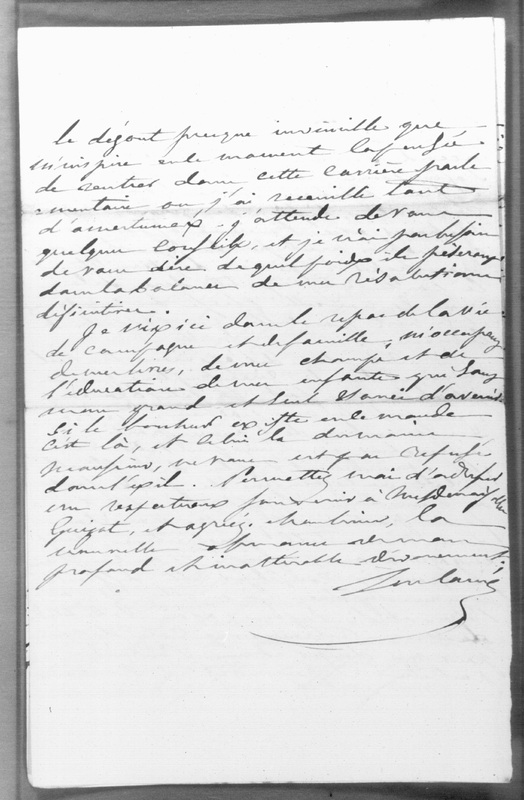 le dégout presque invincible que
m'inspire en ce moment la pensée
de rentrer dans cette carrière parle
-mentaire où j'ai recueilli tant
d'amertumes. J'attends de vous
quelques conseils, et je n'ai pas besoin
de vous dire de quel poids ils pèseront
dans la balance de mes résolutions
définitives.
Je vis ici dans le repos de la vie
de campagne et de famille, m'occupant
de mes livres, de mes champs et de
l'éducation de mes enfants qui sont
mon grand et seul d'avenir
si le bonheur existe en ce monde
c'est là, et celui là du moins
Monsieur, ne vous est pas refusé
dans l'exil. Permettez moi d'adresser
un respectueux souvenir à Mesdemoiselles
Guizot, et agréez, Monsieur, la
nouvelle assurance de mon
profond et inaltérable dévouement.